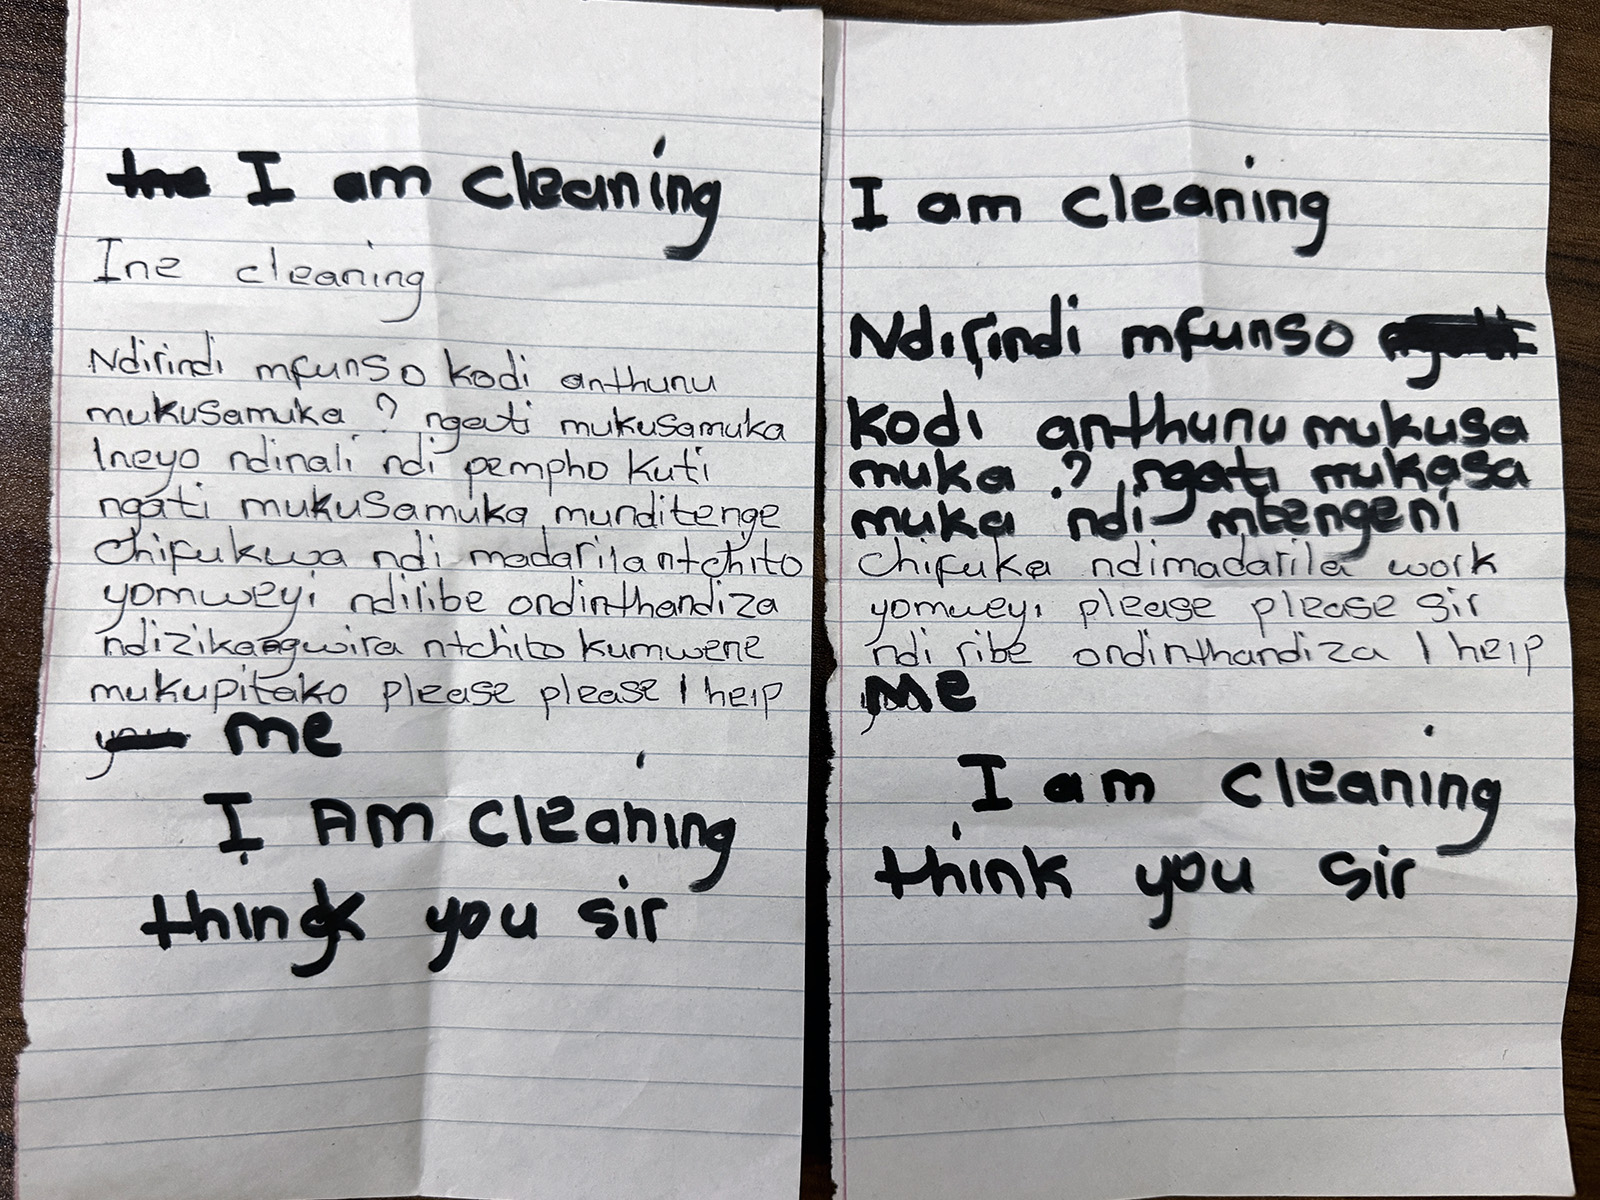 I am cleaning
Ine cleaning
Ndirindi mfunso kodi anthunu
mukusamuka ? ngati mukusamuka
Ineyo ndinali ndi pempho kuti
ngati mukusamuka munditenge
Chifukwa ndi madarila ntchito
yomweyi ndilibe ondinthandiza
ndizikagwira ntchito kumwene
mukupitako please please I help
me
I AM cleaning
think you sir
I am cleaning
Ndirindi mfunso
kodi anthunu mukusa
muka ? ngati mukasa
muka ndi mtengeni
chifuka ndimadarila work
yomweyi please please sir
ndi ribe ondinthandiza I help
me
I am cleaning
think you sir